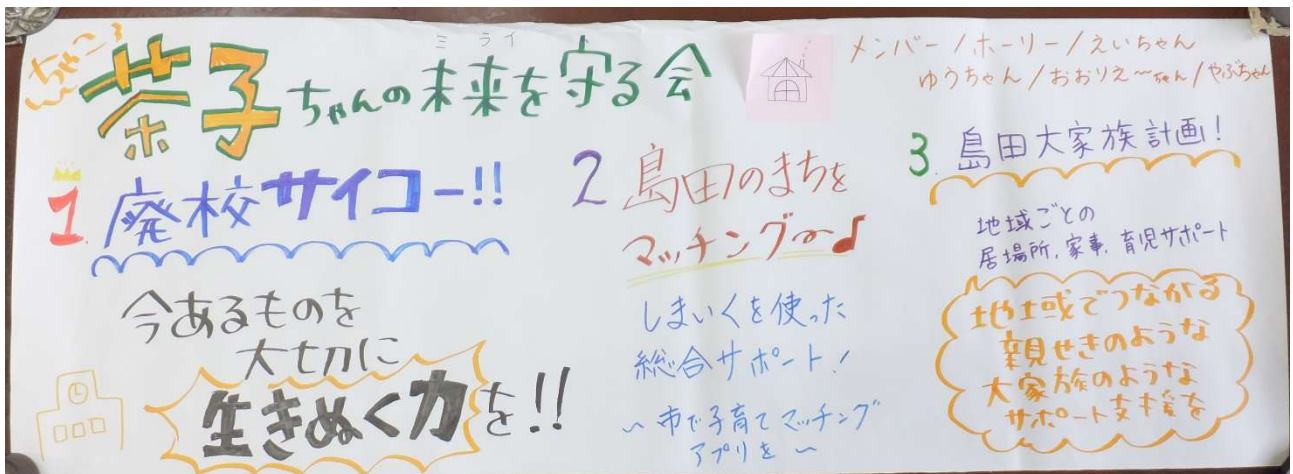 ちゃこ
茶子ちゃんの未来を守る会
ミライ
メンバー/ホーリー/えいちゃん
ゆうちゃん/おおりえ〜ちゃん/やぶちゃん
1. 廃校サイコー!!
今あるものを
大切に
生きぬく力を!!
2 島田のまちを
マッチング〜♪
しまいくを使った
総合サポート!
〜市で子育てマッチング
アプリを〜
3. 島田大家族計画!
地域ごとの
居場所、家事、育児サポート
地域でつながる
親せきのような
大家族のような
サポート支援を